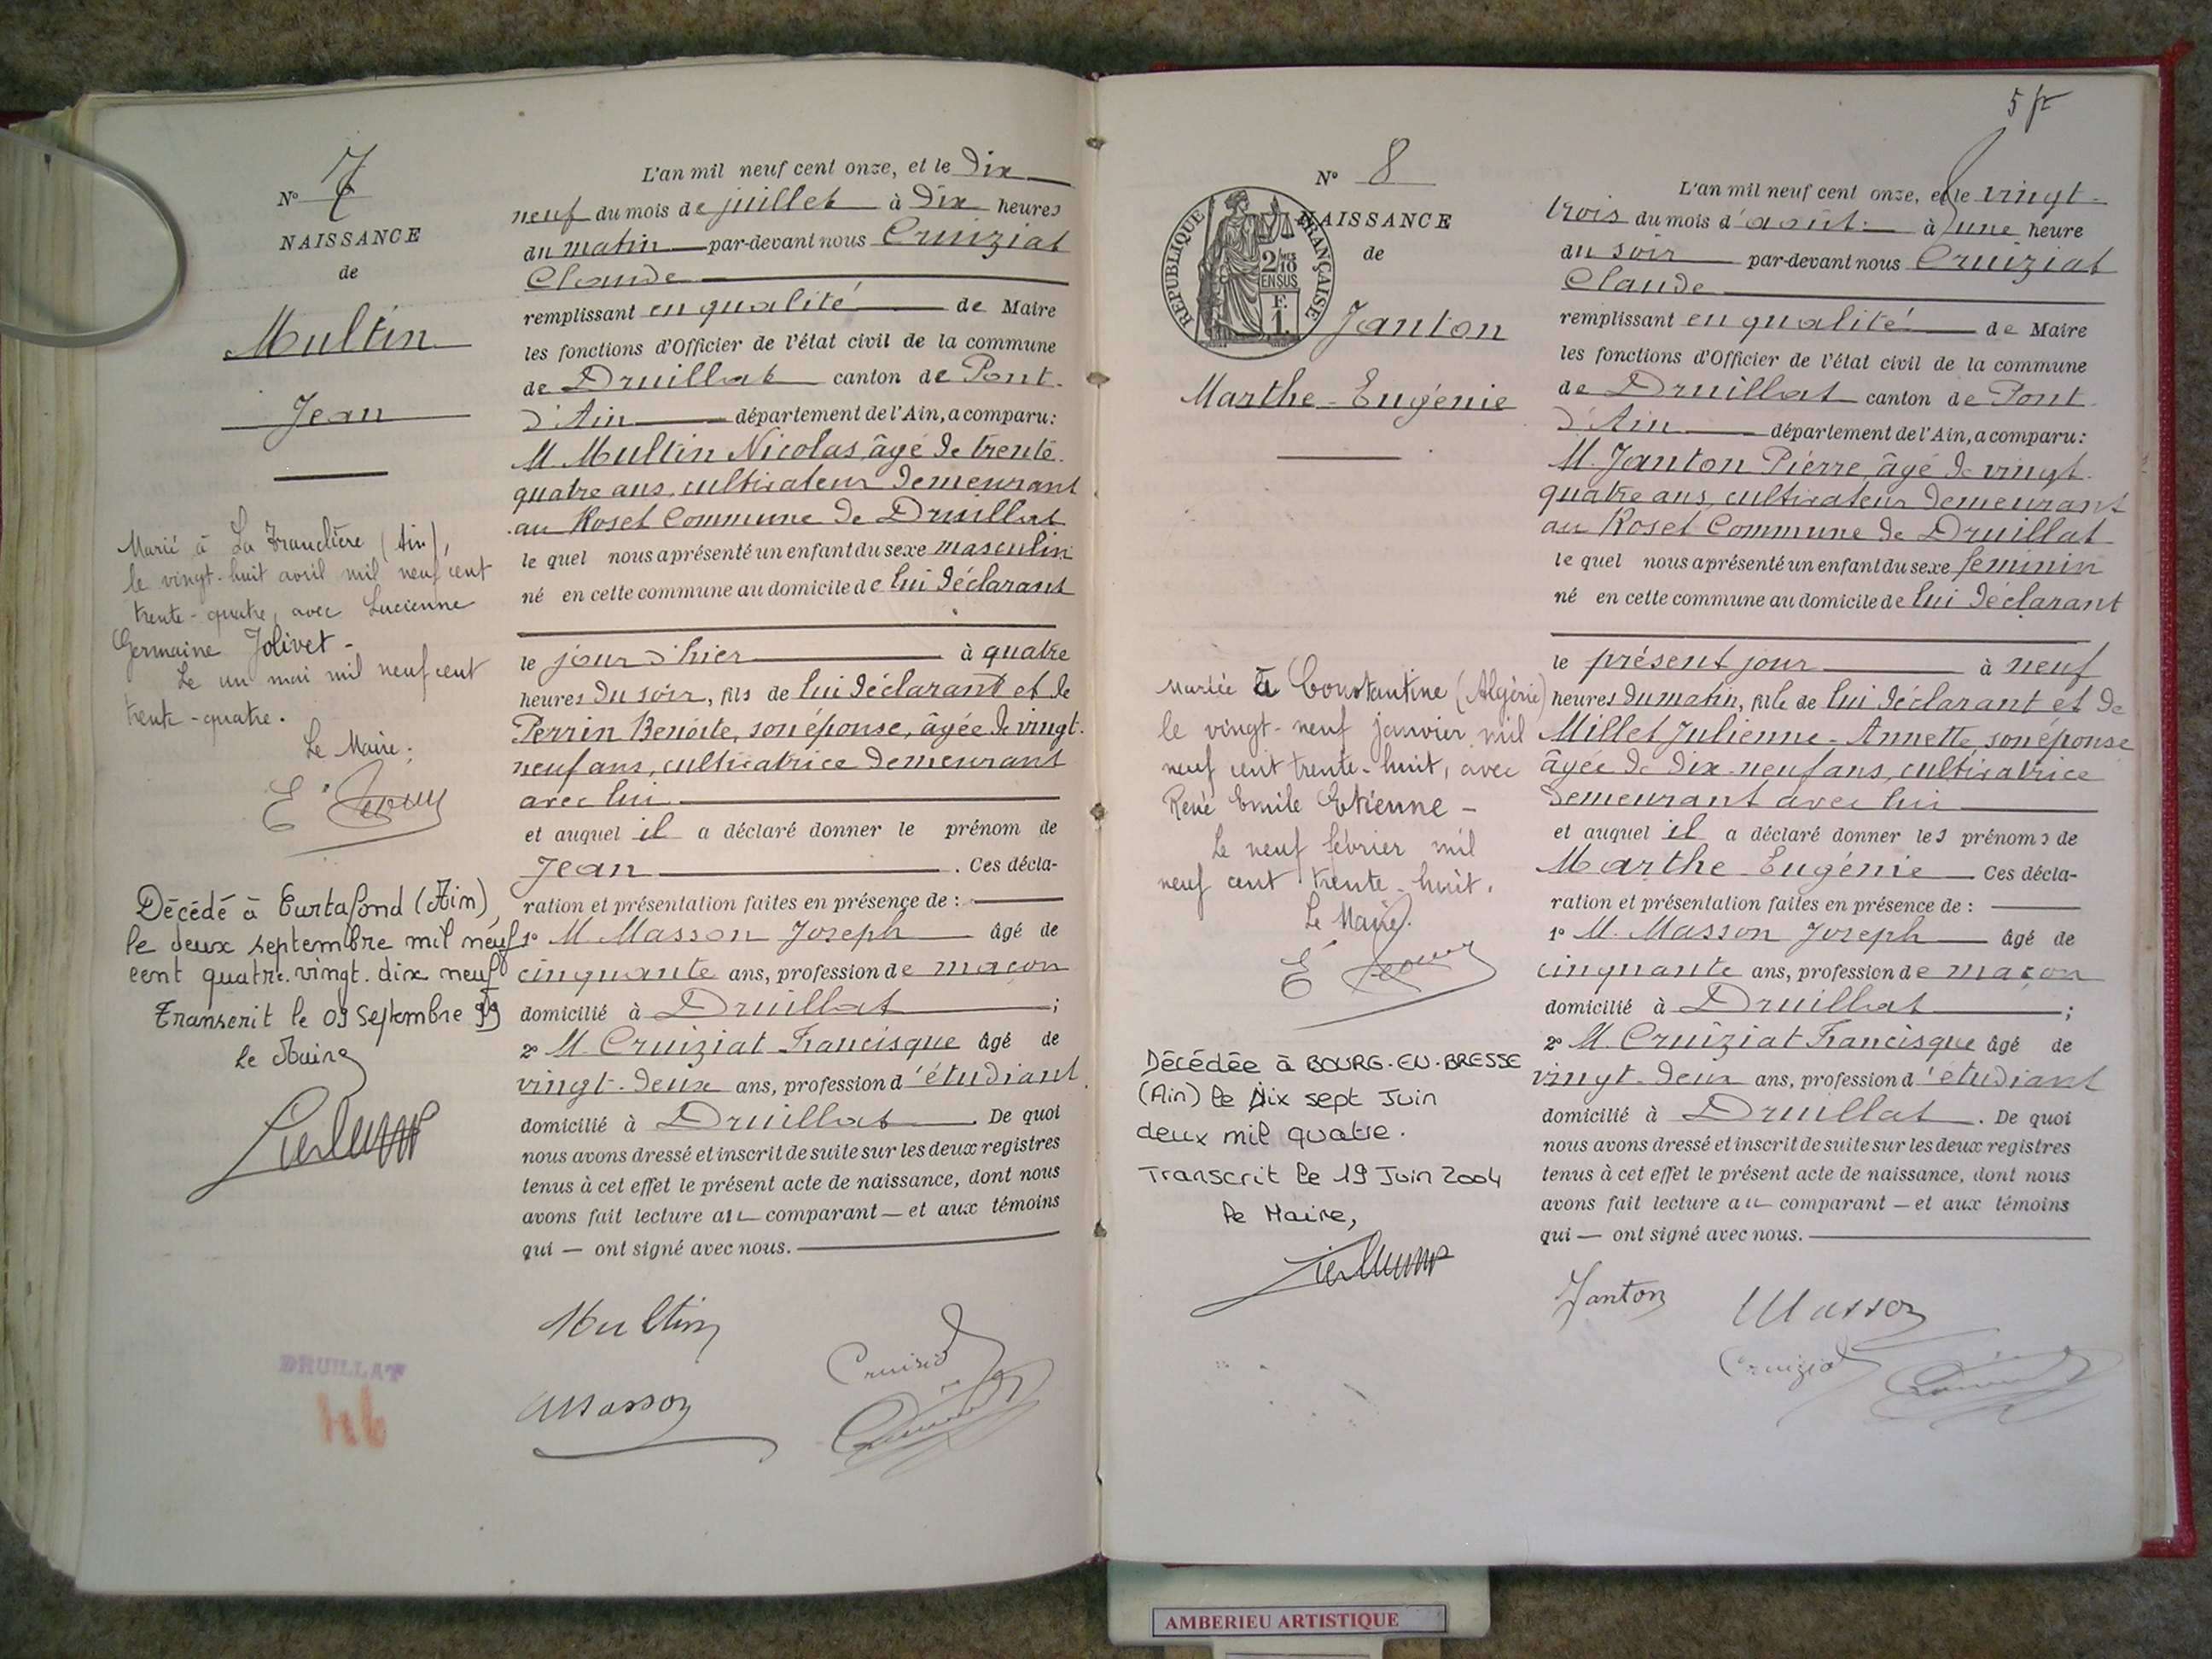 N° 7
NAISSANCE
de
Multin
Jean
Marié à La Tranclière (Ain),
le vingt-huit avril mil neuf cent
trente-quatre, avec Lucienne
Germaine Jolivet -
Le un mai mil neuf cent
trente-quatre.
Le Maire :
Décédé à Curtafond (Ain),
le deux septembre mil neuf
cent quatre.vingt.dix neuf
Transcrit le 09 Septembre 99
le Maire
DRUILLAT
L'an mil neuf cent onze, et le dix
neuf du mois de juillet à dix heures
du matin par-devant nous Cruiziat
Claude
remplissant en qualité de Maire
les fonctions d'Officier de l'état civil de la commune
de Druillat canton de Pont-
d'Ain département de l'Ain, a comparu :
M. Multin Nicolas, âgé de trente-
quatre ans, cultivateur demeurant
au Roset Commune de Druillat
le quel nous a présenté un enfant du sexe masculin
né en cette commune au domicile de lui déclarant
le jour d'hier à quatre
heures du soir, fils de lui déclarant et de
Perrin Benoite, son épouse, âgée de vingt-
neuf ans, cultivatrice demeurant
avec lui
et auquel il a déclaré donner le prénom de
Jean . Ces décla-
ration et présentation faites en présence de :
1° M Masson Joseph âgé de
cinquante ans, profession de maçon
domicilié à Druillat ;
2° M. Cruiziat Francisque âgé de
vingt-deux ans, profession d'étudiant
domicilié à Druillat . De quoi
nous avons dressé et inscrit de suite sur les deux registres
tenus à cet effet le présent acte de naissance, dont nous
avons fait lecture au comparant — et aux témoins
qui — ont signé avec nous.
Multin
Masson
Cruiziat
N° 8
NAISSANCE
de
REPUBLIQUE FRANÇAISE
2/10
EN SUS
F.
1.
Janton
Marthe-Eugénie
Mariée à Constantine (Algérie)
le vingt-neuf janvier mil
neuf cent trente-huit, avec
René Emile Etienne -
Le neuf février mil
neuf cent trente-huit.
Le Maire.
Décédée à BOURG-EN-BRESSE
(Ain) le Dix sept Juin
deux mil quatre.
Transcrit le 19 Juin 2004
Le Maire,
L'an mil neuf cent onze, et le vingt-
trois du mois d'août à une heure
du soir par-devant nous Cruiziat
Claude
remplissant en qualité de Maire
les fonctions d'Officier de l'état civil de la commune
de Druillat canton de Pont
d'Ain département de l'Ain, a comparu :
M. Janton Pierre, âgé de vingt-
quatre ans, cultivateur demeurant
au Roset Commune de Druillat
le quel nous a présenté un enfant du sexe féminin
né en cette commune au domicile de lui déclarant
le présent jour à neuf
heures du matin, fille de lui déclarant et de
Millet Julienne-Annette, son épouse
âgée de dix-neuf ans, cultivatrice
demeurant avec lui
et auquel il a déclaré donner les prénoms de
Marthe Eugénie Ces décla-
ration et présentation faites en présence de :
1° M. Masson Joseph âgé de
cinquante ans, profession de maçon
domicilié à Druillat ;
2° M. Cruiziat Francisque âgé de
vingt-deux ans, profession d'étudiant
domicilié à Druillat . De quoi
nous avons dressé et inscrit de suite sur les deux registres
tenus à cet effet le présent acte de naissance, dont nous
avons fait lecture au comparant — et aux témoins
qui — ont signé avec nous.
Janton
Masson
Cruiziat
AMBERIEU ARTISTIQUE